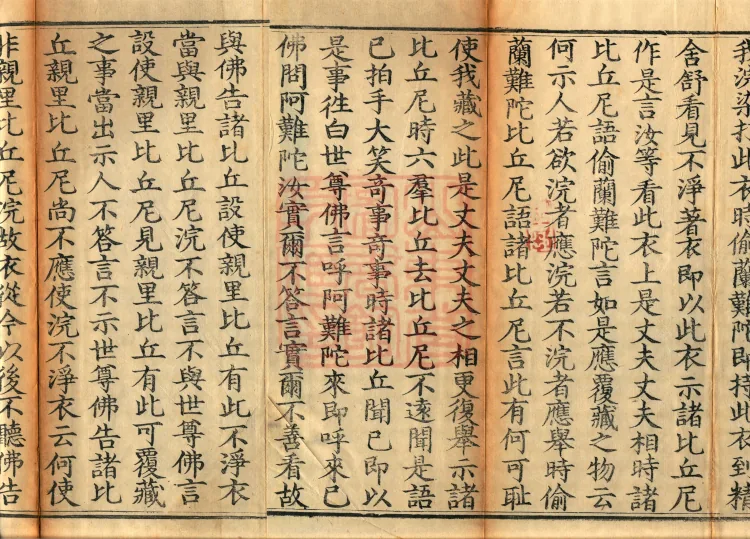 我浣染打此衣時偷蘭難陀即持此衣到精
舍舒看見不淨著衣即以此衣示諸比丘尼
作是言汝等看此衣上是丈夫丈夫相時諸
比丘尼語偷蘭難陀言如是應覆藏之物云
何示人若欲浣者應浣若不浣者應舉時偷
蘭難陀比丘尼語諸比丘尼言此有何可耻
使我藏之此是丈夫丈夫之相更復舉示諸
比丘尼時六羣比丘去比丘尼不遠聞是語
已拍手大笑竒事竒事時諸比丘聞已即以
是事徃白世尊佛言呼阿難陀來即呼來已
佛問阿難陀汝實爾不答言實爾不善看故
與佛告諸比丘設使親里比丘有此不淨衣
當與親里比丘尼浣不答言不與世尊佛言
設使親里比丘尼見親里比丘有此可覆藏
之事當出示人不答言不示世尊佛告諸比
丘親里比丘尼尚不應使浣不淨衣云何使
非親里比丘尼浣故衣從今以後不聽佛告